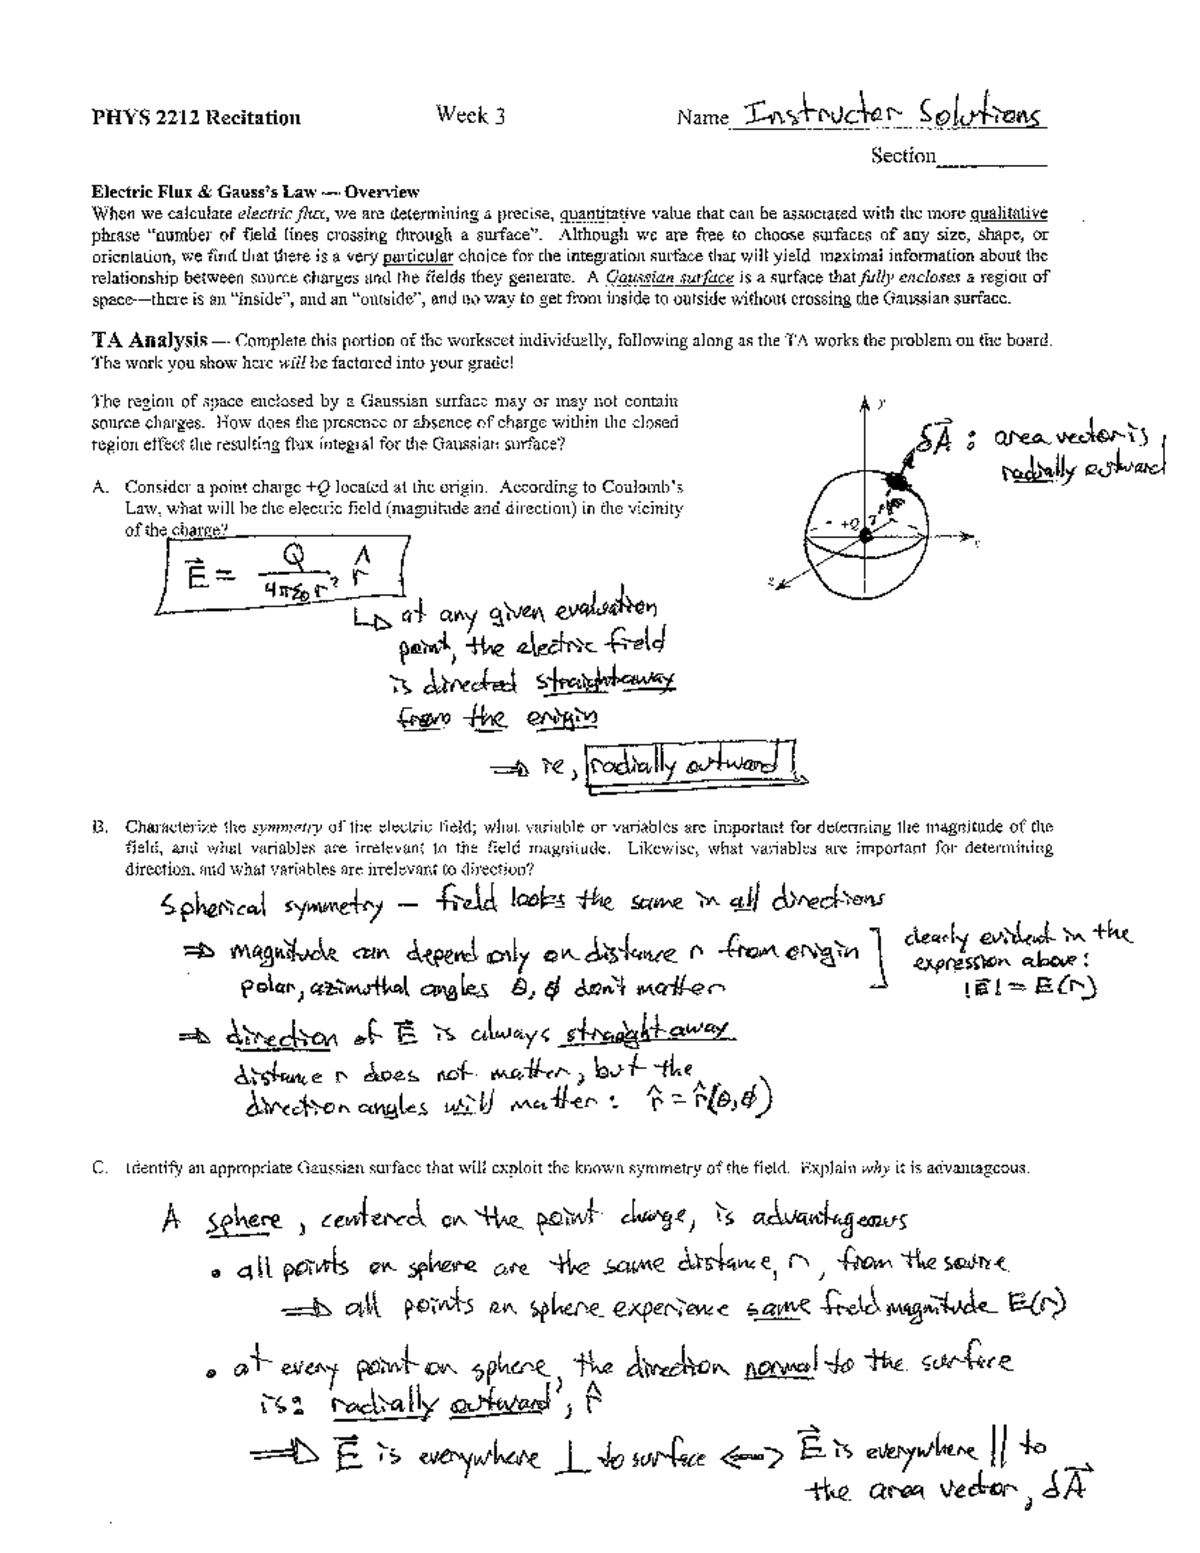 PHYS 2212 Recitation Week 3 Name Instructor Solutions
Section
Electric Flux & Gauss's Law — Overview
When we calculate electric flux, we are determining a precise, quantitative value that can be associated with the more qualitative
phrase “number of field lines crossing through a surface”. Although we are free to choose surfaces of any size, shape, or
orientation, we find that there is a very particular choice for the integration surface that will yield maximal information about the
relationship between source charges and the fields they generate. A Gaussian surface is a surface that fully encloses a region of
space—there is an “inside”, and an “outside”, and no way to get from inside to outside without crossing the Gaussian surface.
TA Analysis — Complete this portion of the worksheet individually, following along as the TA works the problem on the board.
The work you show here will be factored into your grade!
The region of space enclosed by a Gaussian surface may or may not contain
source charges. How does the presence or absence of charge within the closed
region effect the resulting flux integral for the Gaussian surface?
y
dA⃗ : area vector is
radially outward
A. Consider a point charge +Q located at the origin. According to Coulomb's
Law, what will be the electric field (magnitude and direction) in the vicinity
of the charge?
+Q
x
z
E⃗ = Q / 4πε₀r² r̂
↳ at any given evaluation
point, the electric field
is directed straight away
from the origin
⇒ ie, radially outward
B. Characterize the symmetry of the electric field; what variable or variables are important for determing the magnitude of the
field, and what variables are irrelevant to the field magnitude. Likewise, what variables are important for determining
direction, and what variables are irrelevant to direction?
Spherical symmetry — field looks the same in all directions
⇒ magnitude can depend only on distance r from origin
polar, azimuthal angles θ, ϕ don't matter
clearly evident in the
expression above:
|E⃗| = E(r)
⇒ direction of E⃗ is always straight away
distance r does not matter, but the
direction angles will matter: r̂ = r̂(θ,ϕ)
C. Identify an appropriate Gaussian surface that will exploit the known symmetry of the field. Explain why it is advantageous.
A sphere, centered on the point charge, is advantageous
• all points on sphere are the same distance, r, from the source
⇒ all points on sphere experience same field magnitude E(r)
• at every point on sphere, the direction normal to the surface
is: radially outward, r̂
⇒ E⃗ is everywhere ⊥ to surface ⟷ E⃗ is everywhere || to
the area vector, dA⃗